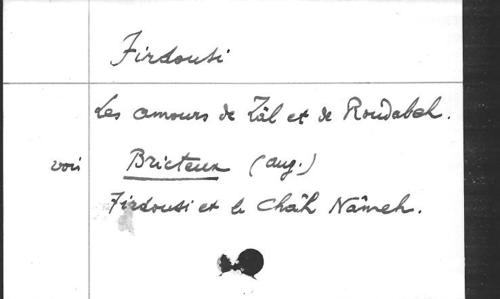 Firdousi
Les amours de Zâl et de Roudabeh.
voir Bricteux (Aug.)
Firdousi et le Châh Nâmeh.